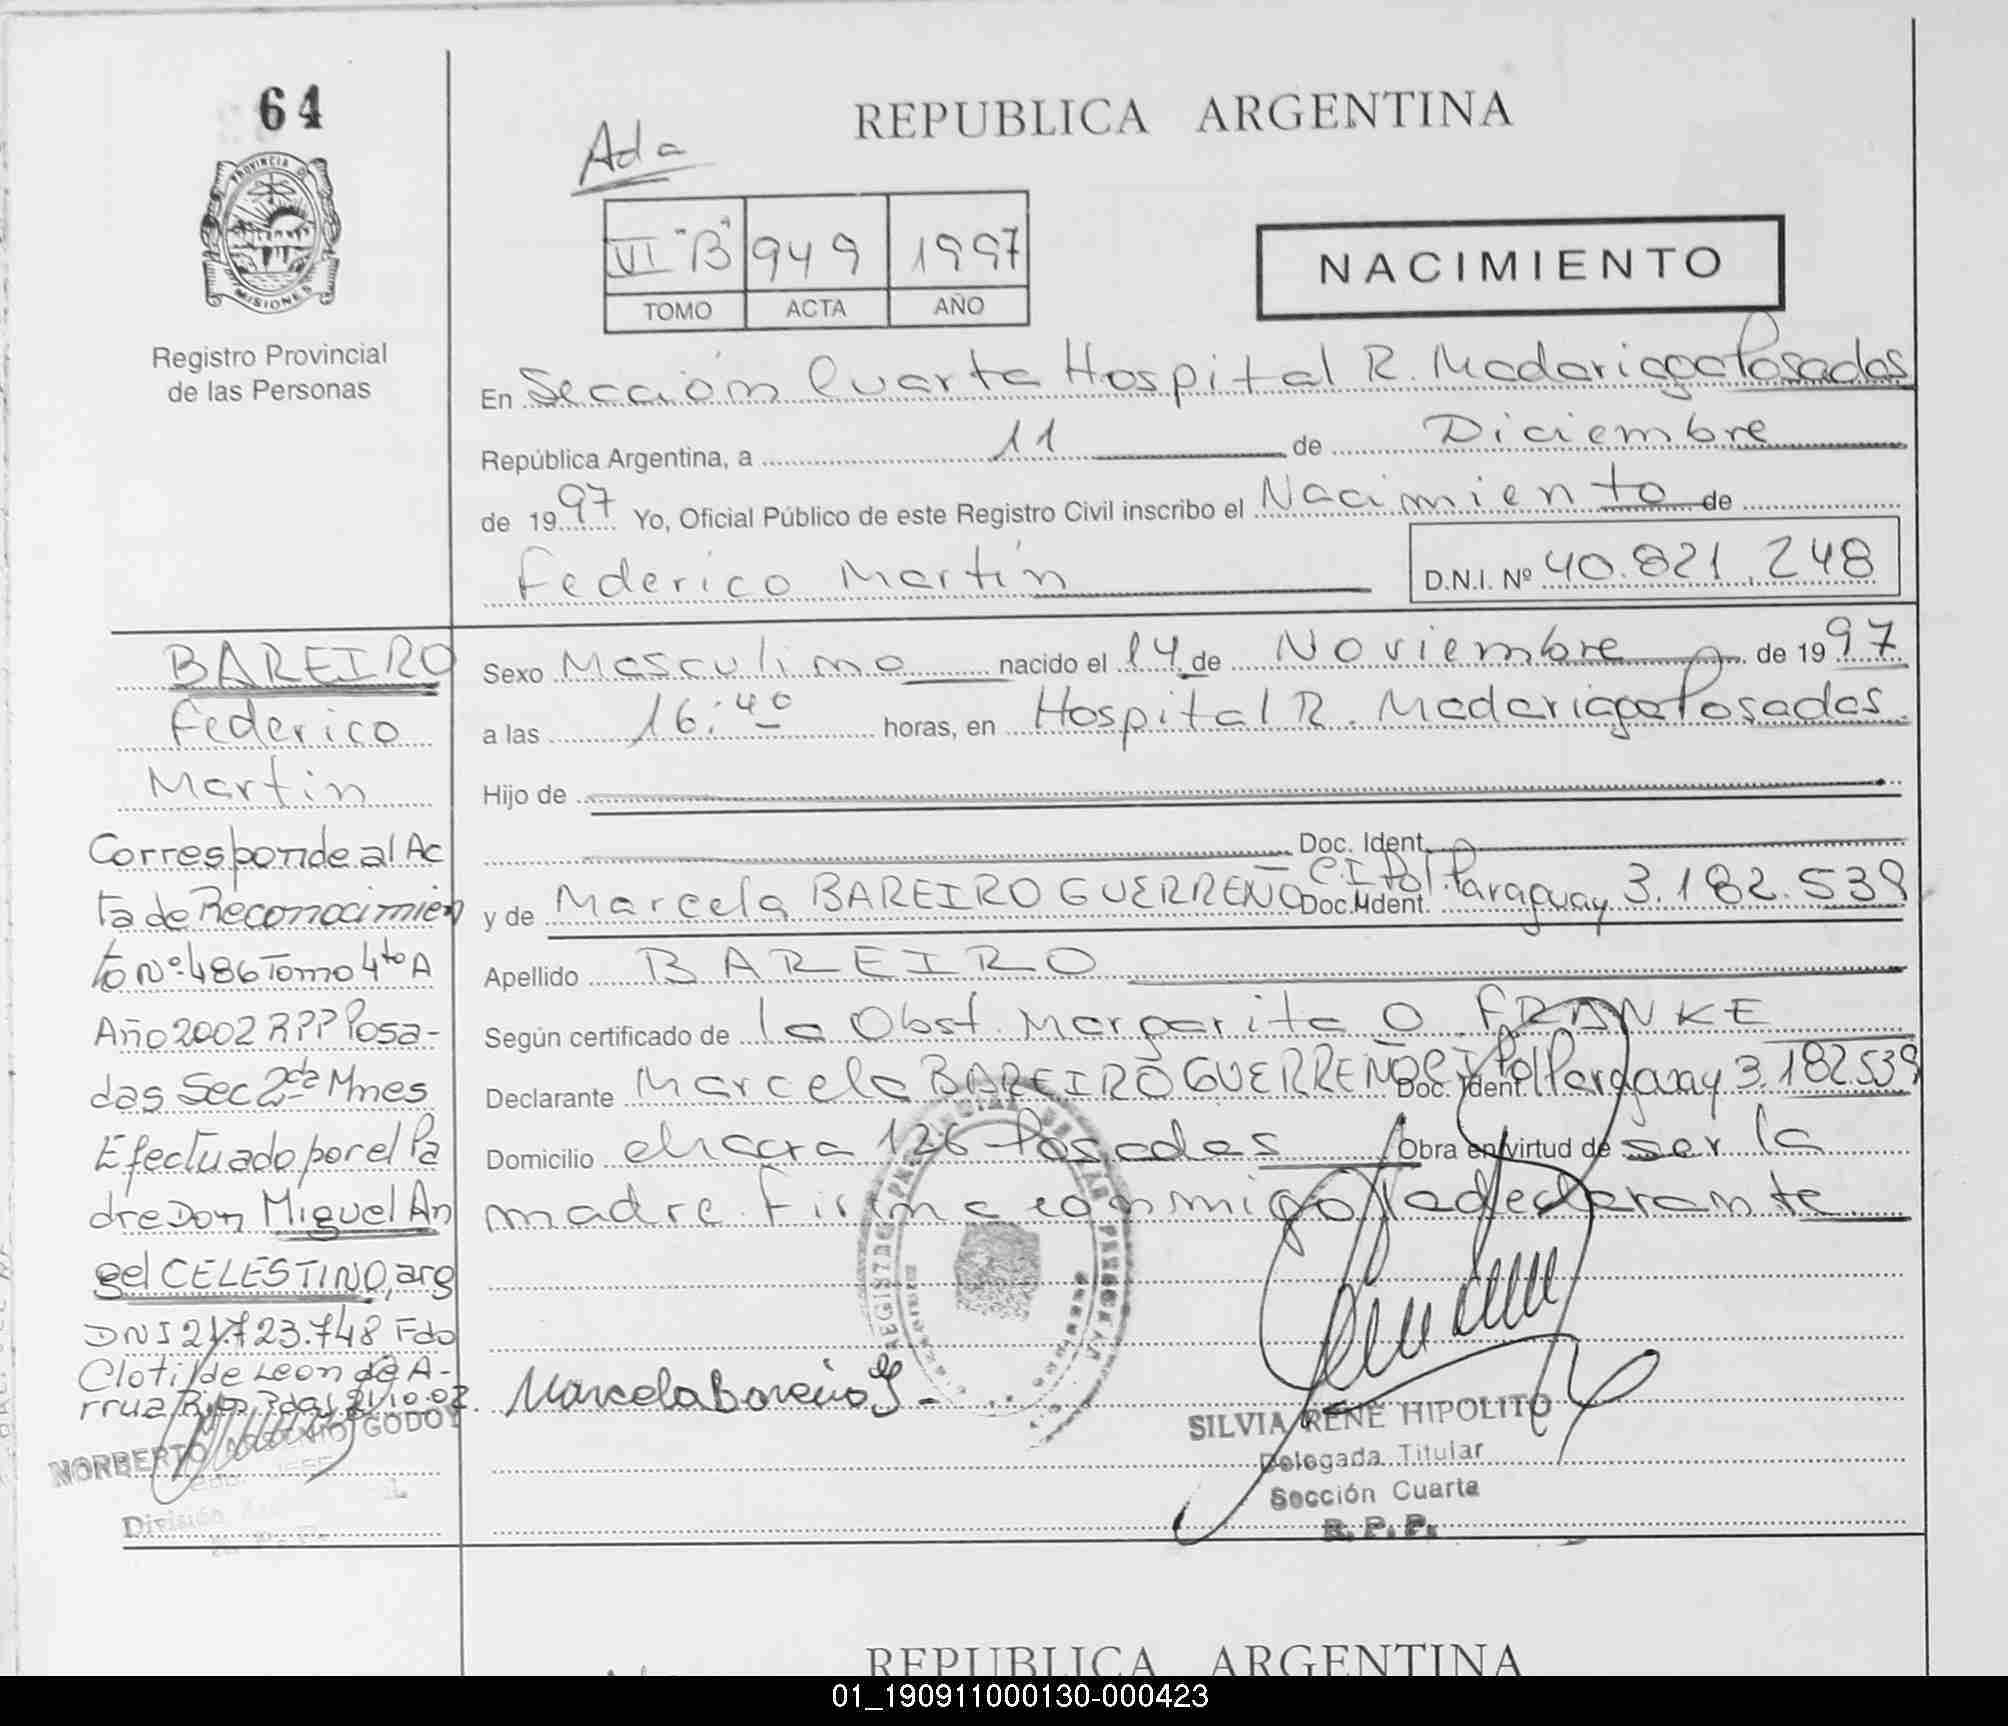 64
PROVINCIA D
MISIONES
Registro Provincial
de las Personas
REPUBLICA ARGENTINA
Ada
VI "B" 949 1997
TOMO ACTA AÑO
NACIMIENTO
En Sección Cuarta Hospital R. Madariaga Posadas
República Argentina, a 11 de Diciembre
de 1997 Yo, Oficial Público de este Registro Civil inscribo el Nacimiento de
Federico Martín
D.N.I. Nº 40.821.248
Sexo Masculino nacido el 14 de Noviembre de 1997
a las 16:40 horas, en Hospital R. Madariaga Posadas
Hijo de
Doc. Ident.
y de Marcela BAREIRO GUERREÑO Doc. Ident. C.I Pol. Paraguay 3.182.539
Apellido BAREIRO
Según certificado de la Obst. Margarita O. FRANKE
Declarante Marcela BAREIRO GUERREÑO Doc. Ident. CI Pol Paraguay 3.182.539
Domicilio chacra 126 Posadas Obra en virtud de ser la
madre. Firma conmigo la declarante
Marcela Bareiro G-
SILVIA RENE HIPOLITO
Delegada Titular
Sección Cuarta
R. P. P.
BAREIRO
Federico
Martin
Corresponde al Ac
ta de Reconocimien
to Nº 486 Tomo 4to A
Año 2002 RPP Posa-
das Sec 2da Mnes
Efectuado por el Pa
dre Don Miguel An
gel CELESTINO, arg
DNI 21.723.748 Fdo
Clotilde Leon de A-
rrua
NORBERTO ARSENIO GODOY
JEFE
División
REPUBLICA ARGENTINA
01_190911000130-000423